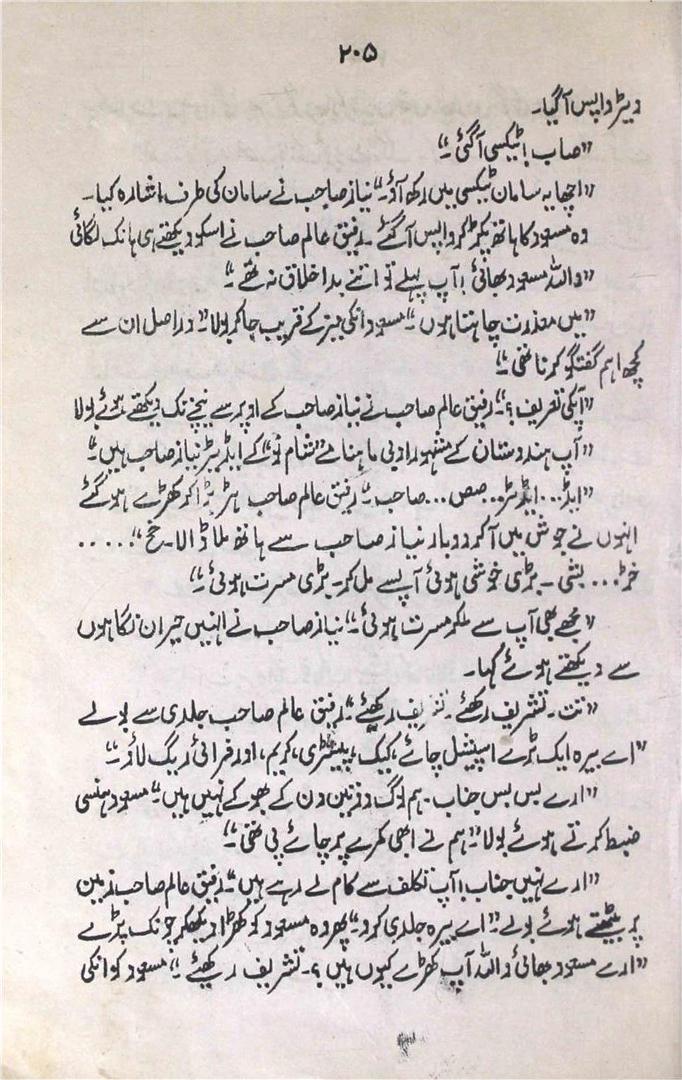 ۲۰۵
ویٹر واپس آگیا۔
”صاب! ٹیکسی آگئی۔“
”اچھا یہ سامان ٹیکسی میں رکھ آؤ۔“ نیاز صاحب نے سامان کی طرف اشارہ کیا۔
وہ مسعود کا ہاتھ پکڑ کر واپس آگئے۔ رفیق عالم صاحب نے اسکو دیکھتے ہی ہانک لگائی
”واللہ مسعود بھائی! آپ پہلے تو اتنے بداخلاق نہ تھے۔“
”میں معذرت چاہتا ہوں۔“ مسعود انکی میز کے قریب جاکر بولا۔ ”دراصل ان سے
کچھ اہم گفتگو کرنا تھی۔“
”آپکی تعریف؟“۔ رفیق عالم صاحب نے نیاز صاحب کے اوپر سے نیچے تک دیکھتے ہوئے بولا
”آپ ہندوستان کے مشہور ادبی ماہنامے ”شام نو“ کے ایڈیٹر نیاز صاحب ہیں۔“
”ایڈ... ایڈیٹر.. صص... صاحب۔“ رفیق عالم صاحب ہڑبڑا کر کھڑے ہوگئے
انہوں نے جوش میں آکر دوبار نیاز صاحب سے ہاتھ ملا ڈالا۔ خخ“.....
خڑ... بشی۔ بڑی خوشی ہوئی آپسے مل کر۔ بڑی مسرت ہوئی۔“
”مجھے بھی آپ سے ملکر مسرت ہوئی۔“ نیاز صاحب نے انہیں حیران نگاہوں
سے دیکھتے ہوئے کہا۔
”تت۔ تشریف رکھئے۔ تشریف رکھئے۔“ رفیق عالم صاحب جلدی سے بولے
”اے بیرہ ایک ٹرے اسپیشل چائے، کیک، پیسٹری، کریم، اور فرائی ڈیگ لاؤ۔“
”ارے بس بس جناب۔ ہم لوگ دو تین دن کے بھوکے نہیں ہیں۔“ مسعود ہنسی
ضبط کرتے ہوئے بولا۔ ”ہم نے ابھی کمرے پر چائے پی تھی۔“
”ارے نہیں جناب! آپ تکلف سے کام لے رہے ہیں۔“ رفیق عالم صاحب زمین
پر بیٹھتے ہوئے بولے۔ ”اے بیرہ جلدی کرو۔“ پھر وہ مسعود کو کھڑا دیکھکر چونک پڑے
”ارے مسعود بھائی واللہ آپ کھڑے کیوں ہیں؟۔ تشریف رکھئے۔“ مسعود کو انکی